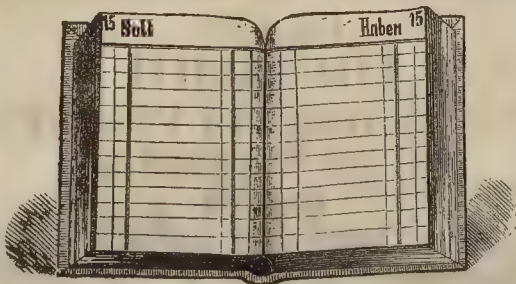 15 Soll
Haben 15